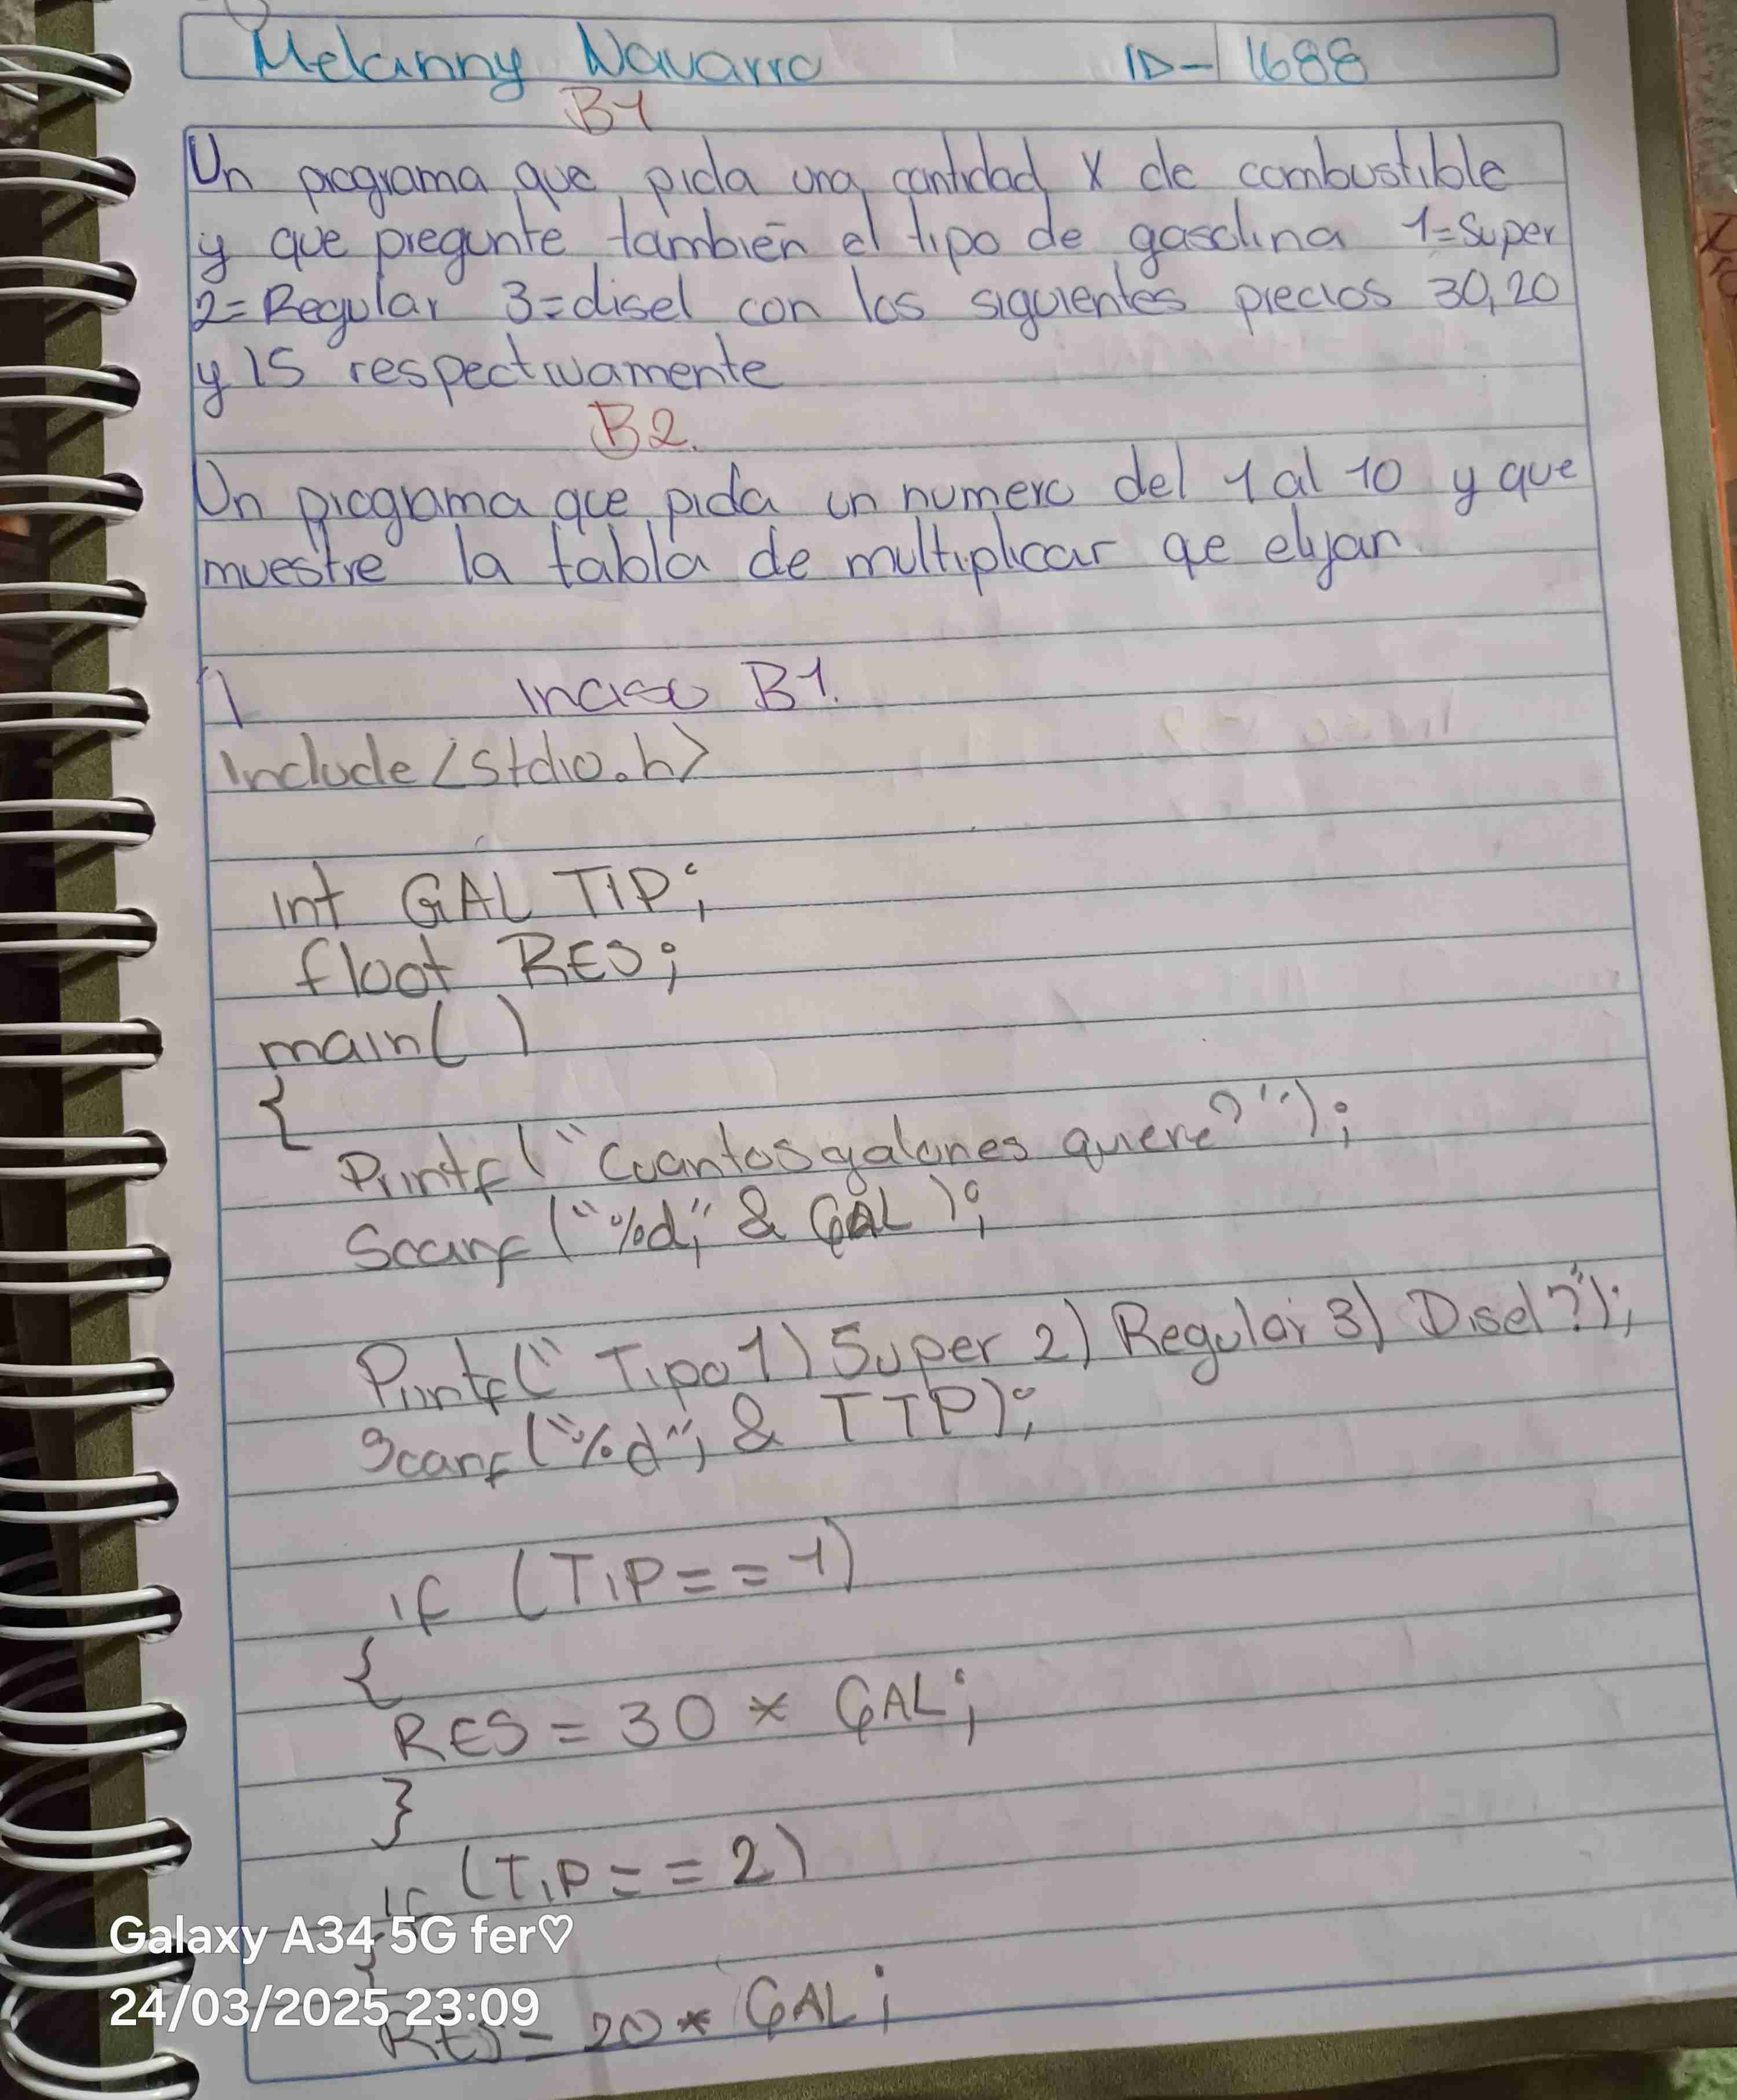 Melanny Navarro ID- 1688
B1
Un programa que pida una cantidad X de combustible
y que pregunte también el tipo de gasolina 1=Super
2=Regular 3=disel con los siguientes precios 30,20
y 15 respectivamente
B2.
Un programa que pida un numero del 1 al 10 y que
muestre la tabla de multiplicar qe elijan
1 Inciso B1.
Include <stdio.h>
int GAL TIP;
float RES;
main( )
{
Printf("Cuantos galones quiere?");
Scanf ("%d," & GAL );
Printf(" Tipo 1) Super 2) Regular 3) Disel?");
Scanf("%d", & TIP);
if (TIP == 1)
{
RES = 30 * GAL;
}
if (TIP == 2)
{
RES = 20 * GAL;
Galaxy A34 5G fer♡
24/03/2025 23:09